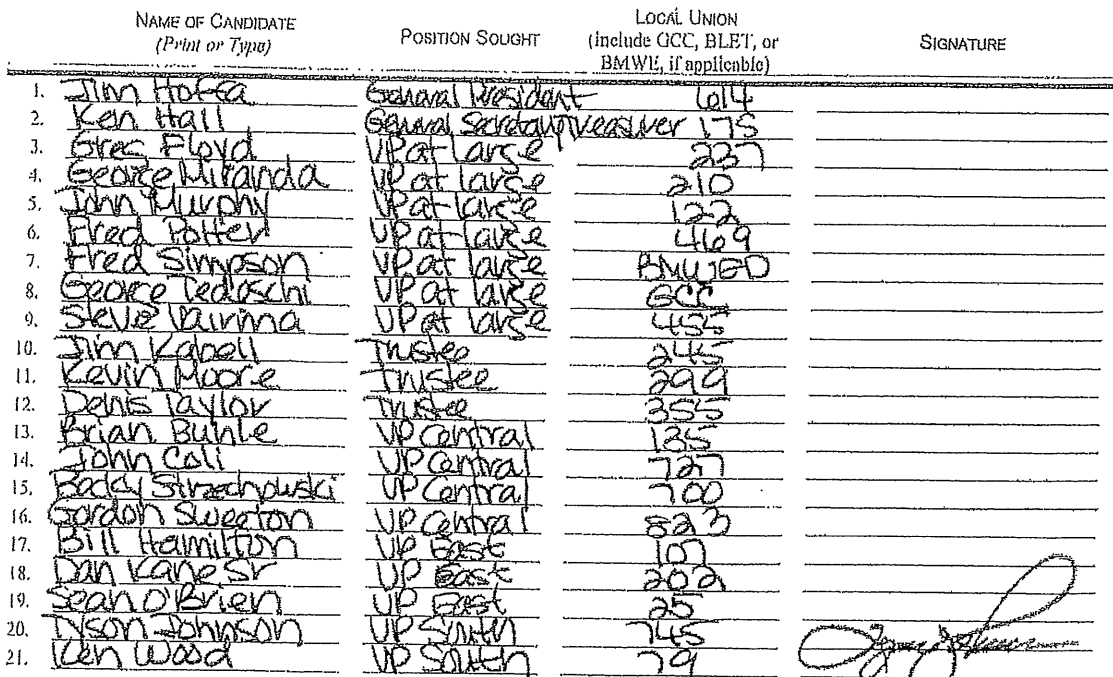 NAME OF CANDIDATE POSITION SOUGHT LOCAL UNION SIGNATURE
(Print or Type) (include GCC, BLET, or
BMWE, if applicable)
1. Jim Hoffa General President 614
2. Ken Hall General Secretary Treasurer 175
3. Greg Floyd VP at large 237
4. George Miranda VP at large 210
5. John Murphy VP at large 122
6. Fred Potter VP at large 469
7. Fred Simpson VP at large BMWED
8. George Tedeschi VP at large GCC
9. Steve Vairma VP at large 455
10. Jim Kabell Trustee 245
11. Kevin Moore Trustee 299
12. Denis Taylor Trustee 355
13. Brian Buhle VP Central 135
14. John Coli VP Central 727
15. Becky Strzechowski VP Central 700
16. Gordon Sweeton VP Central 823
17. Bill Hamilton VP East 107
18. Dan Kane Sr VP East 202
19. Sean O'Brien VP East 25
20. Tyson Johnson VP South 745
21. Ken Wood VP South 79